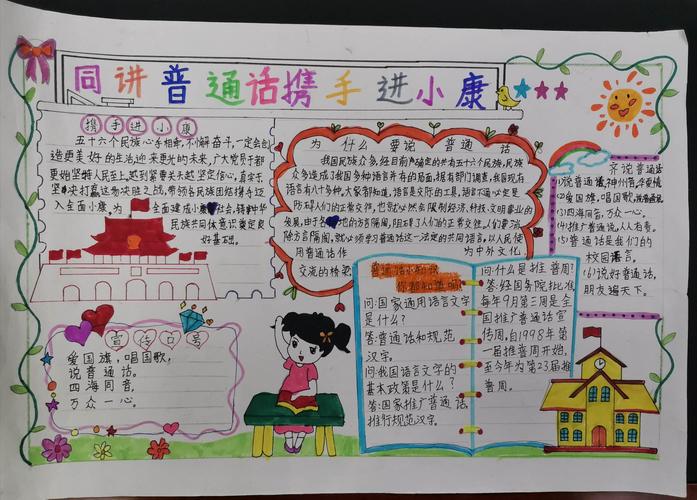 同讲普通话携手进小康
携手进小康
五十六个民族心手相牵,不懈奋斗,一定会创
造更美好的生活迎来更光的未来,广大党员干部
更始坚持人民至上越到紧要关头越坚定信心,真求干
坚决打赢这场决胜之战,带领各族团结携手迈
入全面小康。为 全面建成小康社会,铸 中华
民族共体意识奠定良
好基础。
为什么要说普通话
我国民族众多,经目前产确定的共有五十六个民族,民族
众多造成了我多种语言并存的局面,据有部门调查,我国现有
语言有八十多种。大家都知道,语言是交际的工具,语言不通必定是
妨碍人们的正常交往,也就必然会限制经济、科技、文明事业的
发展,由于各地的方言隔阂,阻碍了人们的正常交往。人们要消
除方言隔阂,就必须学习普通话这一法定的共同语言,以人民使
用普通话作 为中外文化
交流的桥梁
齐说普通话
(1)说普通话,神州音,华夏情
(2)爱国旗,唱国歌,
(3)四海同音,万众一心。
(4)推广普通话,人人有责。
(5)普通话是我们的
校园语言
(6)说好普通话,
朋友遍天下。
普通话小知识
你都知道吗
问:国家通用语言文字
是什么?
答:普通话和规范
汉字。
问:我国语言文字的
基本政策是什么?
答:国家推广普通话,
推行规范汉字。
问:什么是推普周!
答:经国务院批准
每年9月第三周是全
国推广普通话宣
传周,自1998年第
一届推普周开始,
至今年为第23届推
普周。
宣传口号
爱国旗,唱国歌,
说普通话。
四海同音,
万众一心。